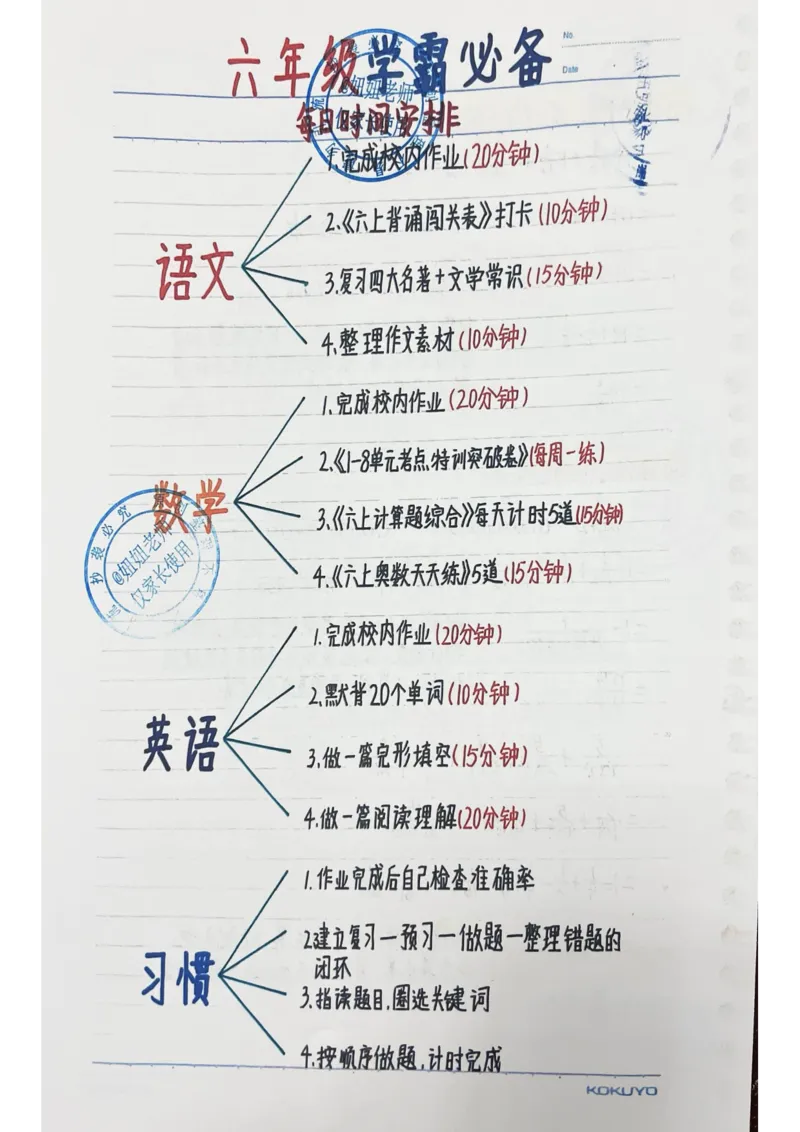 六年级学霸必备
No.
Date
每日时间安排
语文
1.完成校内作业(20分钟)
2.《六上背诵闯关表》打卡(10分钟)
3.复习四大名著+文学常识(15分钟)
4.整理作文素材(10分钟)
数学
1.完成校内作业(20分钟)
2.《1-8单元考点.特训突破卷》(每周一练)
3.《六上计算题综合》每天计时5道(15分钟)
4.《六上奥数天天练》5道(15分钟)
抄袭必究
@妞妞老师
仅家长使用
英语
1.完成校内作业(20分钟)
2.默背20个单词(10分钟)
3.做一篇完形填空(15分钟)
4.做一篇阅读理解(20分钟)
习惯
1.作业完成后自己检查准确率
2.建立复习一预习一做题一整理错题的
闭环
3.指读题目,圈选关键词
4.按顺序做题,计时完成
KOKUYO